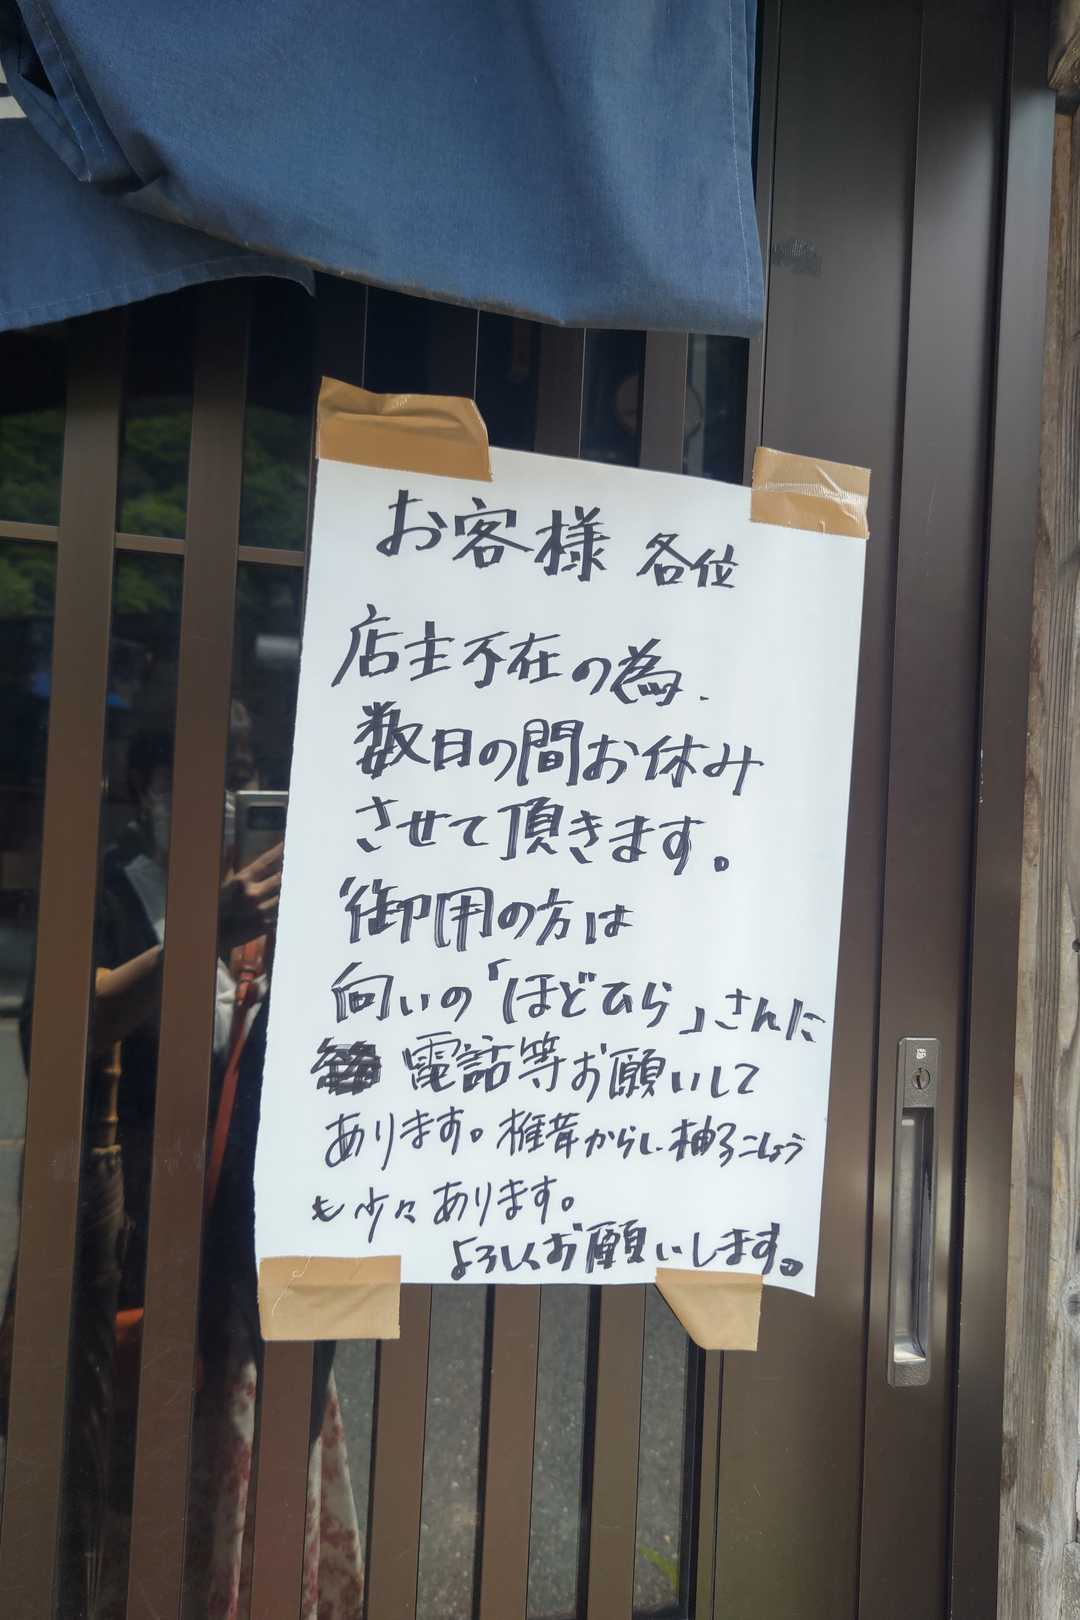 お客様 各位
店主不在の為、
数日の間お休み
させて頂きます。
御用の方は
向いの「ほどひら」さんに
電話等お願いして
あります。椎茸からし、柚子こしょう
も少々あります。
よろしくお願いします。